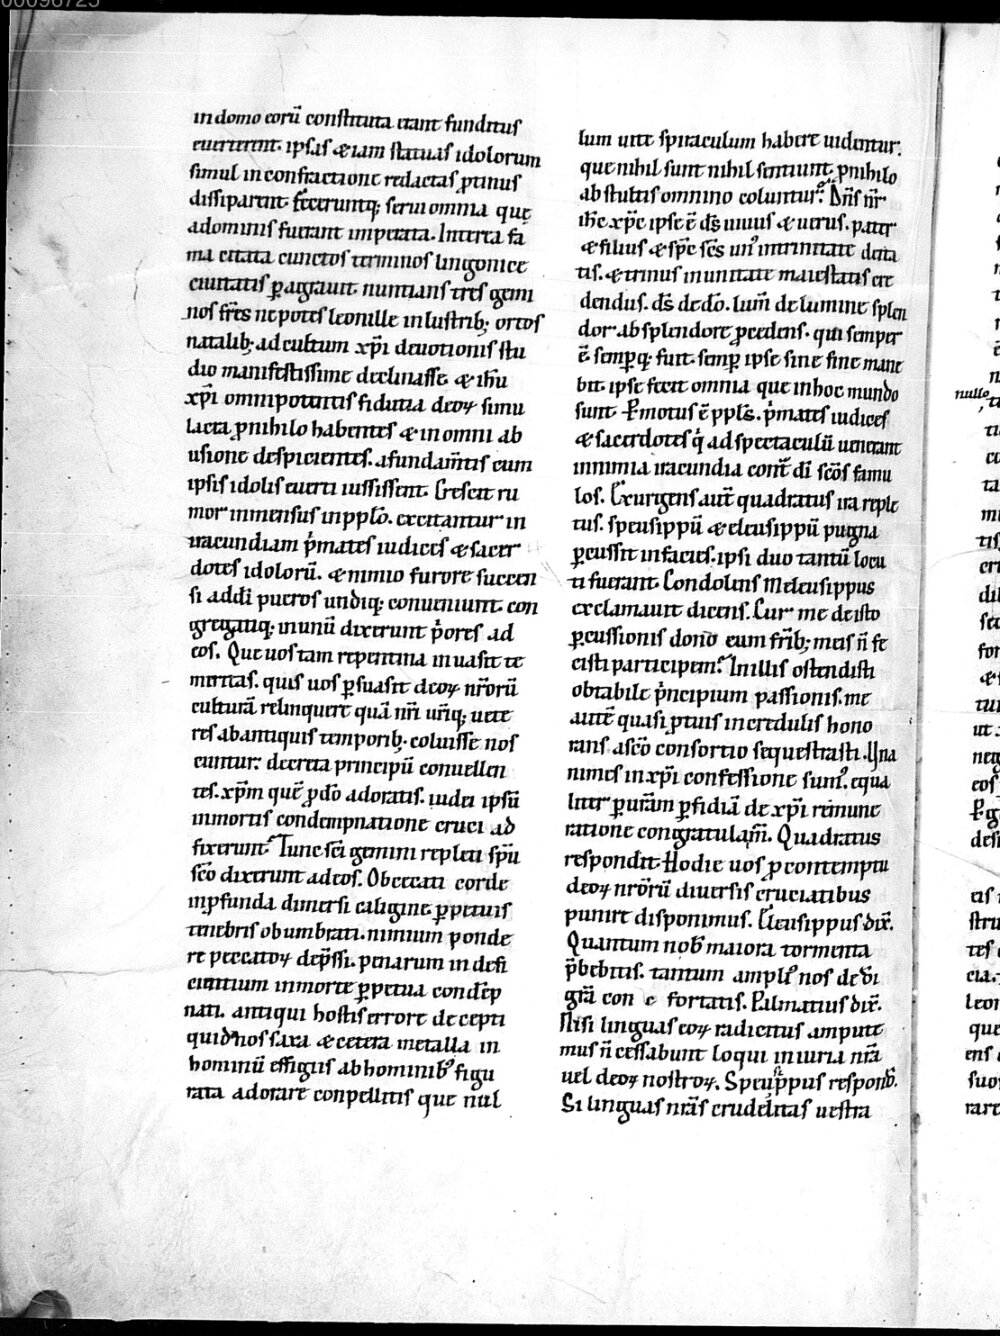 00098725
in domo eorū constituta erant funditus
euerterent. ipsas & iam statuas idolorum
simul in confractione redactas ꝓtinus
dissiparent. Feceruntq; serui omnia quę
a dominis fuerant imperata. Interea fa
ma citata cunctos terminos lingonice
ciuitatis ꝑagrauit. nuntians tres gemi
nos fr̄es nepotes leonille inlustrib; ortos
natalib; ad cultum xp̄i deuotionis stu
dio manifestissime declinasse. & ih̄u
xp̄i omnipotentis fidutia deoꝝ simu
lacra ꝓ nihilo habentes & in omni ab
usione despicientes. a fundam̄tis cum
ipsis idolis euerti iussissent. Crescit ru
mor inmensus in pp̄lo. excitantur in
iracundiam p̄mates iudices & sacer
dotes idolorū. & nimio furore succen
si ad d̄i pueros undiq; conueniunt. con
gregatiq; in unū dixerunt p̄ores ad
eos. Que uos tam repentina inuasit te
meritas. quis uos ꝑsuasit deoꝝ nr̄orū
culturā relinquere quā nr̄i ur̄iq; uete
res ab antiquis temporib; coluisse nos
cuntur: decreta principū conuellen
tes. xp̄m quē ꝓ dō adoratis. iudei ipsū
in mortis condempnatione cruci ad
fixerunt. Tunc sc̄i gemini repleti sp̄u
sc̄o dixerunt ad eos. Obcecati corde
in ꝓfunda dimersi caligine. ꝑpetuis
tenebris obumbrati. nimium ponde
re peccatoꝝ dep̄ssi. penarum in defi
cientium in morte ꝑpetua condēp
nati. antiqui hostis errore decepti
quid nos saxa & cetera metalla in
hominū effigiis ab hominib; figu
rata adorare conpellitis que nul
lum uite spiraculum habere uidentur.
que nihil sunt nihil sentiunt. ꝓ nihilo
ab stultis omnino coluntur. Dn̄s nr̄
ih̄c xp̄c ipse ē d̄s uiuus & uerus. pater
& filius & sp̄c sc̄s unꝰ in trinitate deita
tis. & trinus in unitate maiestatis cre
dendus. d̄s de dō. lum̄ de lumine splen
dor ab splendore ꝓcedens. qui semper
ē sempq; fuit. semp ipse sine fine mane
bit. ipse fecit omnia que in hoc mundo
sunt. Ꝑmotus ē ppl̄s. p̄mates iudices
& sacerdotes q̇ ad spectaculū uenerant
inmmia iracundia cont̄ d̄i sc̄os famu
los. Exurgens aut̄ quadratus ira reple
tus. speusippū & eleusippū pugna
ꝑcussit in facies. ipsi duo tantū locu
ti fuerant. Condolens Meleusippus
exclamauit dicens. Cur me de isto
ꝑcussionis dono cum fr̄ib; meis n̄ fe
cisti participem. In illis ostendisti
obtabile p̄ncipium passionis. me
autē quasi ꝓ tuis incredulis hono
rans a sc̄o consortio sequestrasti. Una
nimes in xp̄i confessione sumꝰ. equa
liter ꝑ ueram ꝑfidiā de xp̄i remune
ratione congratulam̄. Quadratus
respondit. Hodie uos ꝓ contemptu
deoꝝ nr̄orū diuersis cruciatibus
punire disponimus. Eleusippus dix̄.
Quantum nob̄ maiora tormenta
p̄bebitis. tantum amplꝰ nos de d̄i
gr̄a con fortatis. Palmatius dix̄.
Nisi linguas eoꝝ radicitus ampute
mus n̄ cessabunt loqui iniuria nr̄a
uel deoꝝ nostroꝝ. Speusippus respond̄.
Si linguas nr̄as crudelitas uestra
nullo